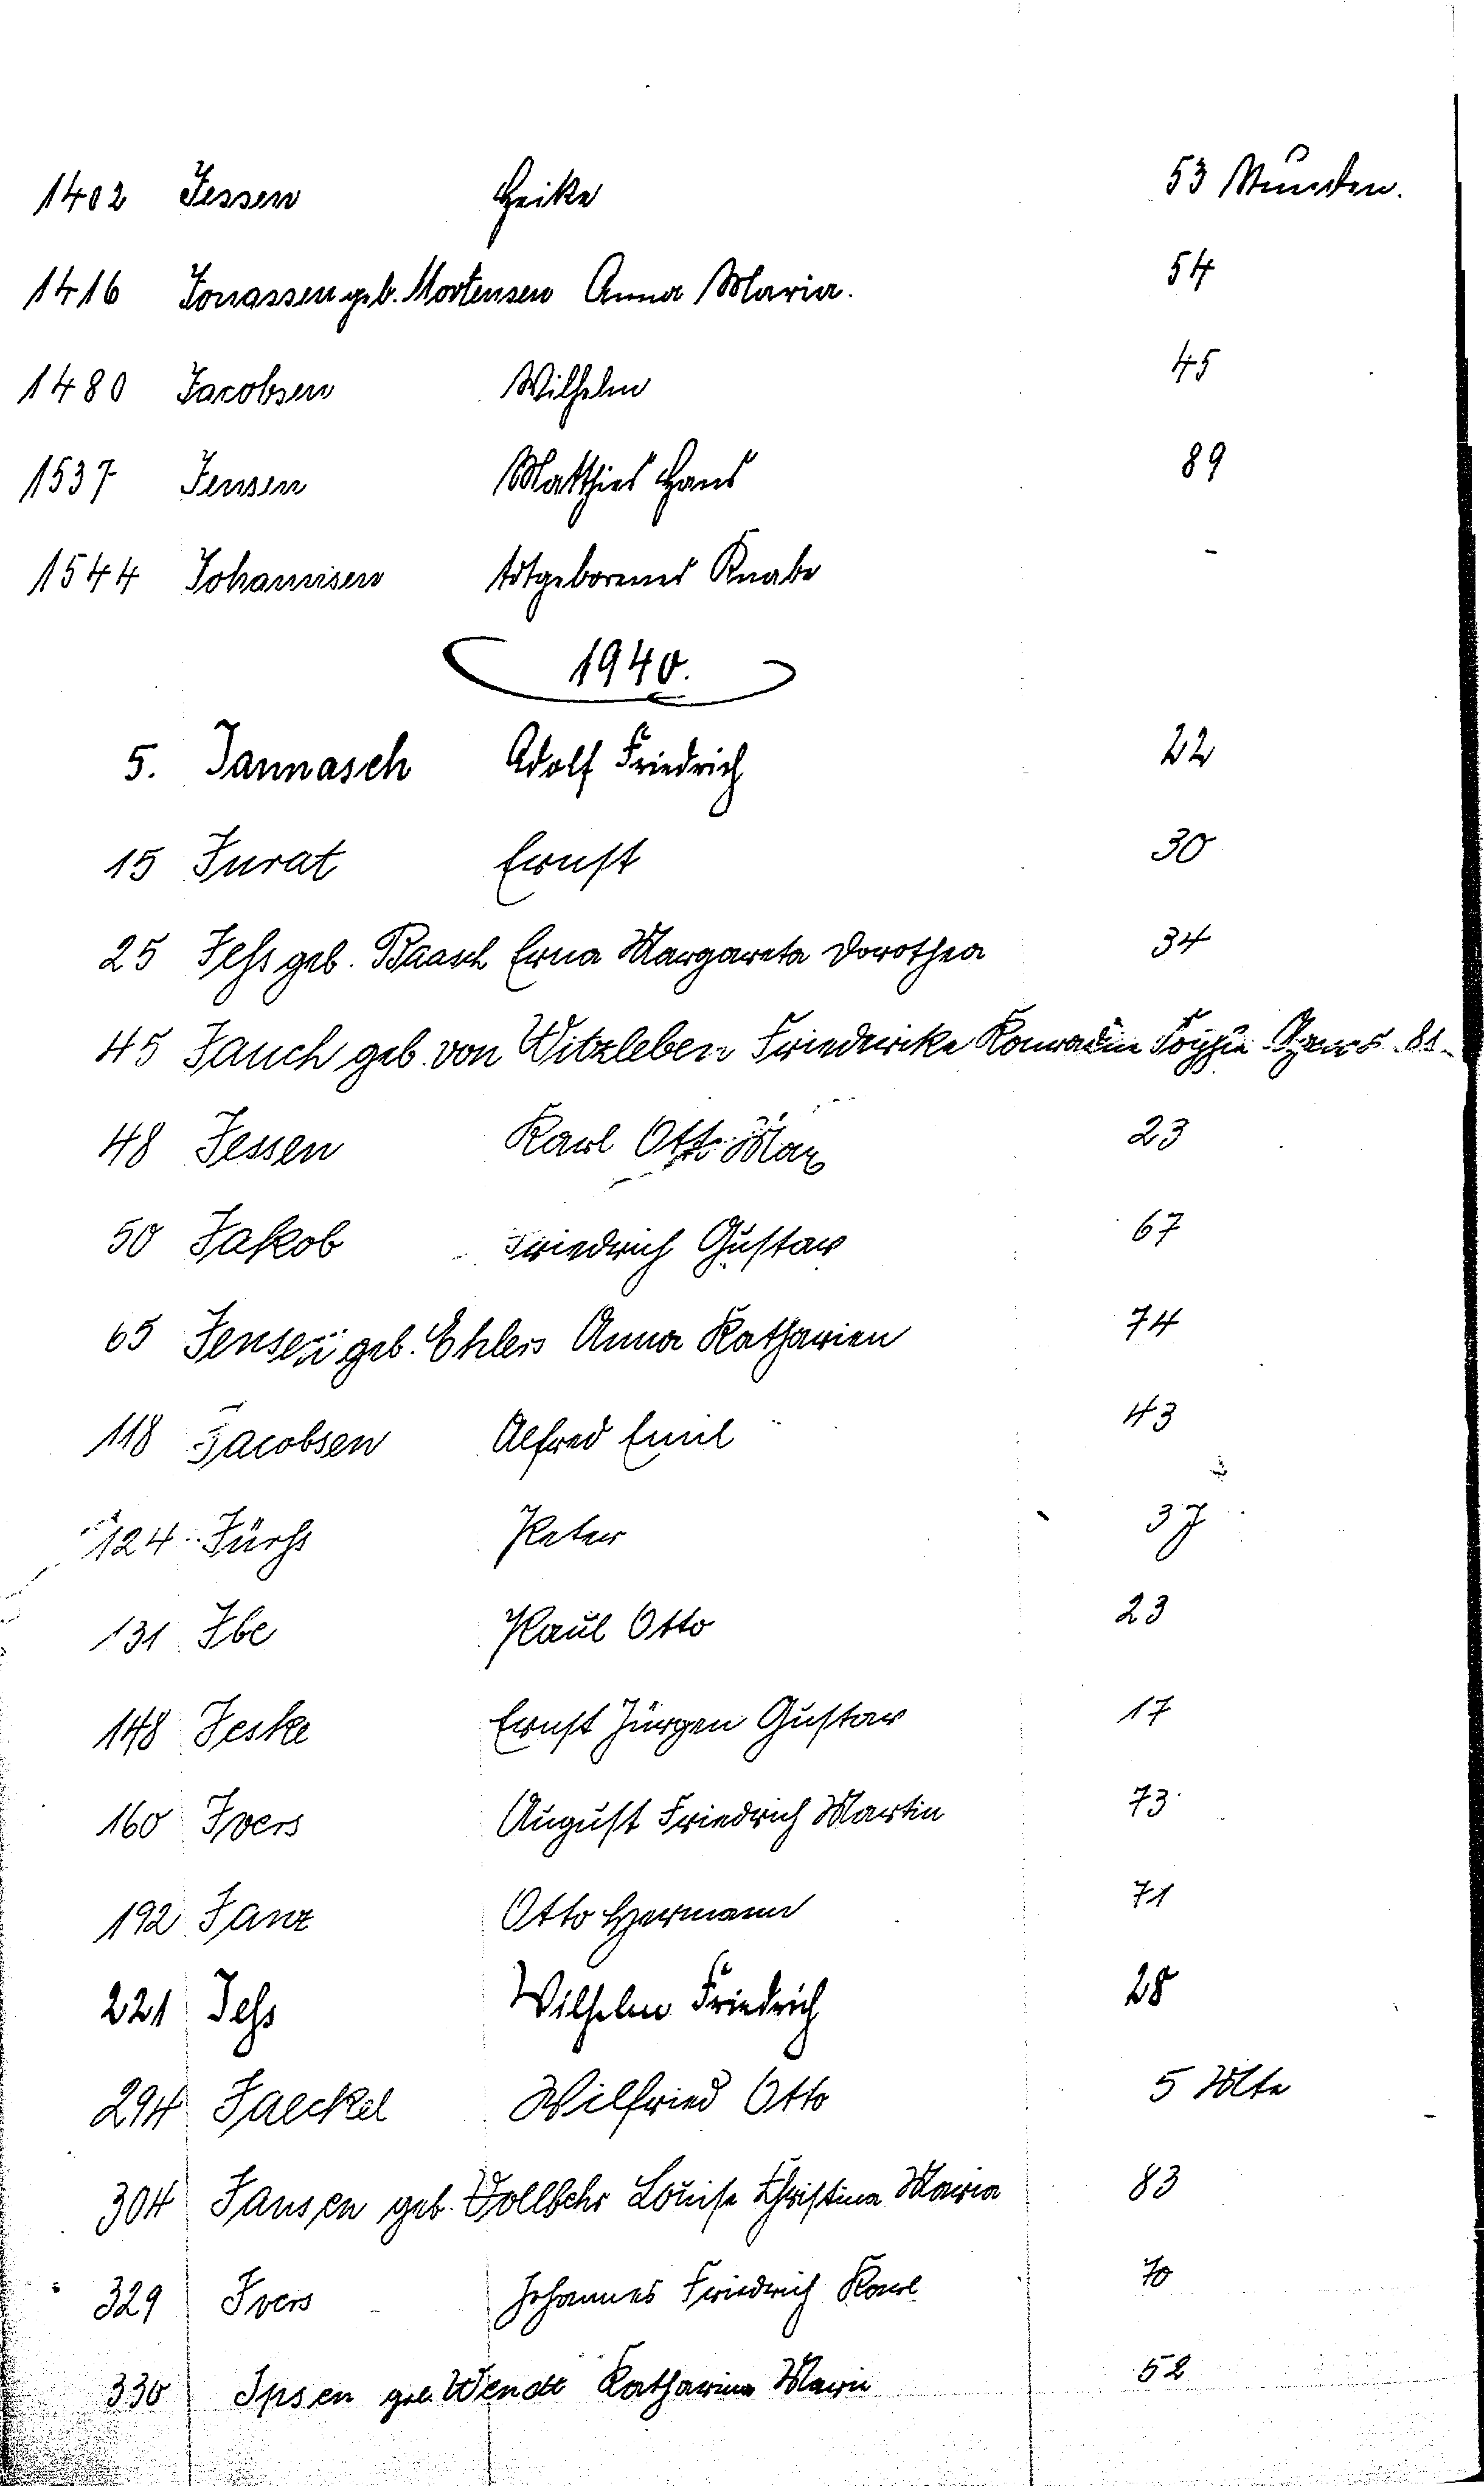 1402 Jessen Heike 53 Stunden.
1416 Jonassen geb. Mortensen Anna Maria. 54
1480 Jacobsen Wilhelm 45
1537 Jensen Matthies Hans 89
1544 Johannsen totgeborener Knabe -
1940.
5. Jannasch Adolf Friedrich 22
15 Jurat Ernst 30
25 Jeß geb. Baasch Erna Margareta Dorothea 34
45 Jauch geb. von Witzleben Friederike Konradine Sophie 81
48 Jessen Karl Otto Max 23
50 Jakob Friedrich Gustav 67
65 Jensen geb. Ehlers Anna Katharien 74
118 Jacobsen Alfred Emil 43
124 Jürß Peter 37
131 Ibe Paul Otto 23
148 Jeske Ernst Jürgen Gustav 17
160 Ivers August Friedrich Martin 73
192 Janz Otto Hermann 71
221 Jeß Wilhelm Friedrich 28
294 Jaeckel Wilfried Otto 5
304 Jansen geb. Vollbehr Louise Christina Maria 83
329 Ivers Johannes Friedrich Karl 70
330 Ipsen geb. Wendt Katharina Marie 52